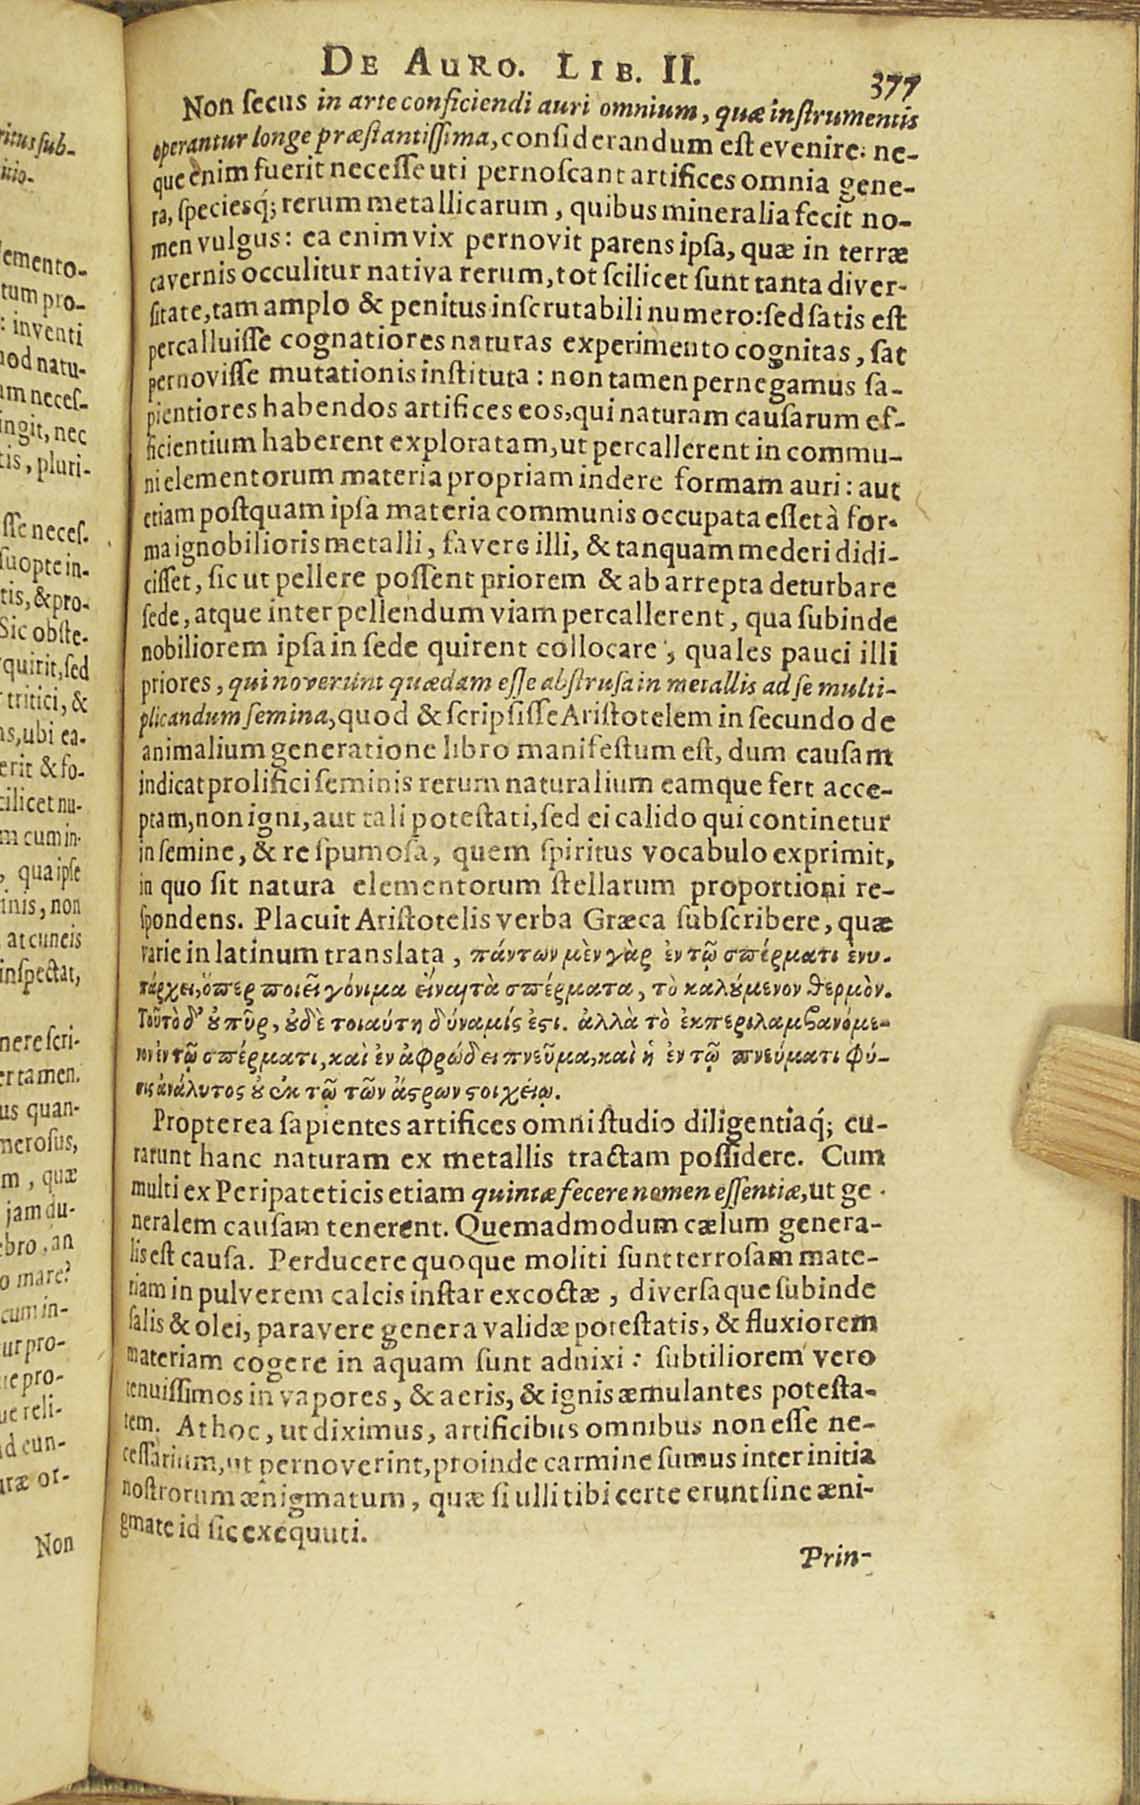 DE AURO. LIB. II. 377
Non secus in arte conficiendi auri omnium, quæ instrumentis
operantur longe præstantissima, considerandum est evenire: ne-
que enim fuerit necesse uti pernoscant artifices omnia gene-
ra, speciesq́; rerum metallicarum, quibus mineralia fecit no-
men vulgus: ea enim vix pernovit parens ipsa, quæ in terræ
cavernis occulitur nativa rerum, tot scilicet sunt tanta diver-
sitate, tam amplo & penitus inscrutabili numero: sed satis est
percalluisse cognatiores naturas experimento cognitas, sat
pernovisse mutationis instituta: non tamen pernegamus sa-
pientiores habendos artifices eos, qui naturam causarum ef-
ficientium haberent exploratam, ut percallerent in commu-
ni elementorum materia propriam indere formam auri: aut
etiam postquam ipsa materia communis occupata esset à for-
ma ignobilioris metalli, favere illi, & tanquam mederi didi-
cisset, sic ut pellere possent priorem & ab arrepta deturbare
sede, atque inter pellendum viam percallerent, qua subinde
nobiliorem ipsa in sede quirent collocare, quales pauci illi
priores, qui noverunt quædam esse abstrusa in metallis ad se multi-
plicandum semina, quod & scripsisse Aristotelem in secundo de
animalium generatione libro manifestum est, dum causam
indicat prolifici seminis rerum naturalium eamque fert acce-
ptam, non igni, aut tali potestati, sed ei calido qui continetur
in semine, & re spumosa, quem spiritus vocabulo exprimit,
in quo sit natura elementorum stellarum proportioni re-
spondens. Placuit Aristotelis verba Græca subscribere, quæ
varie in latinum translata, πάντων μὲν γὰρ ἐν τῷ σπέρματι ἐνυ-
πάρχει, ὅπερ ποιεῖ γόνιμα εἶναι τὰ σπέρματα, τὸ καλούμενον θερμὸν.
Τοῦτο δ' οὐ πῦρ, οὐδὲ τοιαύτη δύναμίς ἐστι. ἀλλὰ τὸ ἐκπεριλαμβανόμε-
νον ἐν τῷ σπέρματι, καὶ ἐν ἀφρώδει πνεῦμα, καὶ ἡ ἐν τῷ πνεύματι φύ-
σις ἀνάλυτος οὐκ τῷ τῶν ἄστρων στοιχείῳ.
Propterea sapientes artifices omni studio diligentiaq́; cu-
rarunt hanc naturam ex metallis tractam possidere. Cum
multi ex Peripateticis etiam quintæ fecere nomen essentiæ, ut ge-
neralem causam tenerent. Quemadmodum cælum genera-
lis est causa. Perducere quoque moliti sunt terrosam mate-
riam in pulverem calcis instar excoctæ, diversaque subinde
salis & olei, paravere genera validæ potestatis, & fluxiorem
materiam cogere in aquam sunt adnixi: subtiliorem vero
tenuissimos in vapores, & aeris, & ignis æmulantes potesta-
tem. At hoc, ut diximus, artificibus omnibus non esse ne-
cessarium, ut pernoverint, proinde carmine sumus inter initia
nostrorum ænigmatum, quæ si ulli tibi certe erunt sine æni-
gmate id sic exequuti.
Prin-
ritus sub-
itio-
lemento-
tum pro-
: inventi
uod natu-
um neces-
ingit, nec
tis, pluri-
sse neces-
suopte in-
tis, & pro-
Sic obste-
quirit, sed
tritici, &
as, ubi ea-
erit & fo-
cilicet nu-
m cum in-
, qua ipse
inis, non
at cuneis
inspectat,
nere scri-
er tamen.
us quan-
merosus,
m, quæ
jam du-
ebro, an
o mare?
cum in-
ur pro-
te pro-
ue reli-
id eun-
uræ or-
Non